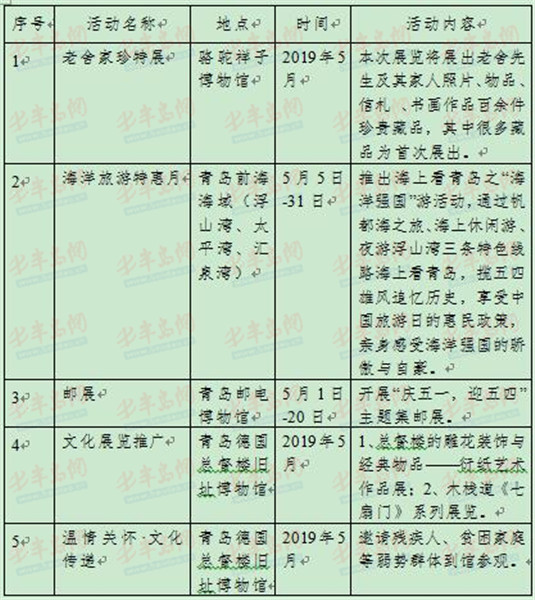 序号 活动名称 地点 时间 活动内容
1 老舍家珍特展 骆驼祥子 2019年5 本次展览将展出老舍先
博物馆 月 生及其家人照片、物品、
信札、书画作品百余件
珍贵藏品，其中很多藏
品为首次展出。
2 海洋旅游特惠月 青岛前海 5月5日 推出海上看青岛之“海
海域（浮 -31日 洋强国”游活动，通过帆
山湾、太 都海之旅、海上休闲游、
平湾、汇 夜游浮山湾三条特色线
泉湾） 路海上看青岛，揽五四
雄风追忆历史，享受中
国旅游日的惠民政策，
亲身感受海洋强国的骄
傲与自豪。
3 邮展 青岛邮电 5月1日 开展“庆五一，迎五四”
博物馆 -20日 主题集邮展。
4 文化展览推广 青岛德国 2019年5 1、总督楼的雕花装饰与
总督楼旧 月 经典物品——衍纸艺术
址博物馆 作品展；2、木栈道《七
扇门》系列展览。
5 温情关怀·文化 青岛德国 2019年5 邀请残疾人、贫困家庭
传递 总督楼旧 月 等弱势群体到馆参观。
址博物馆